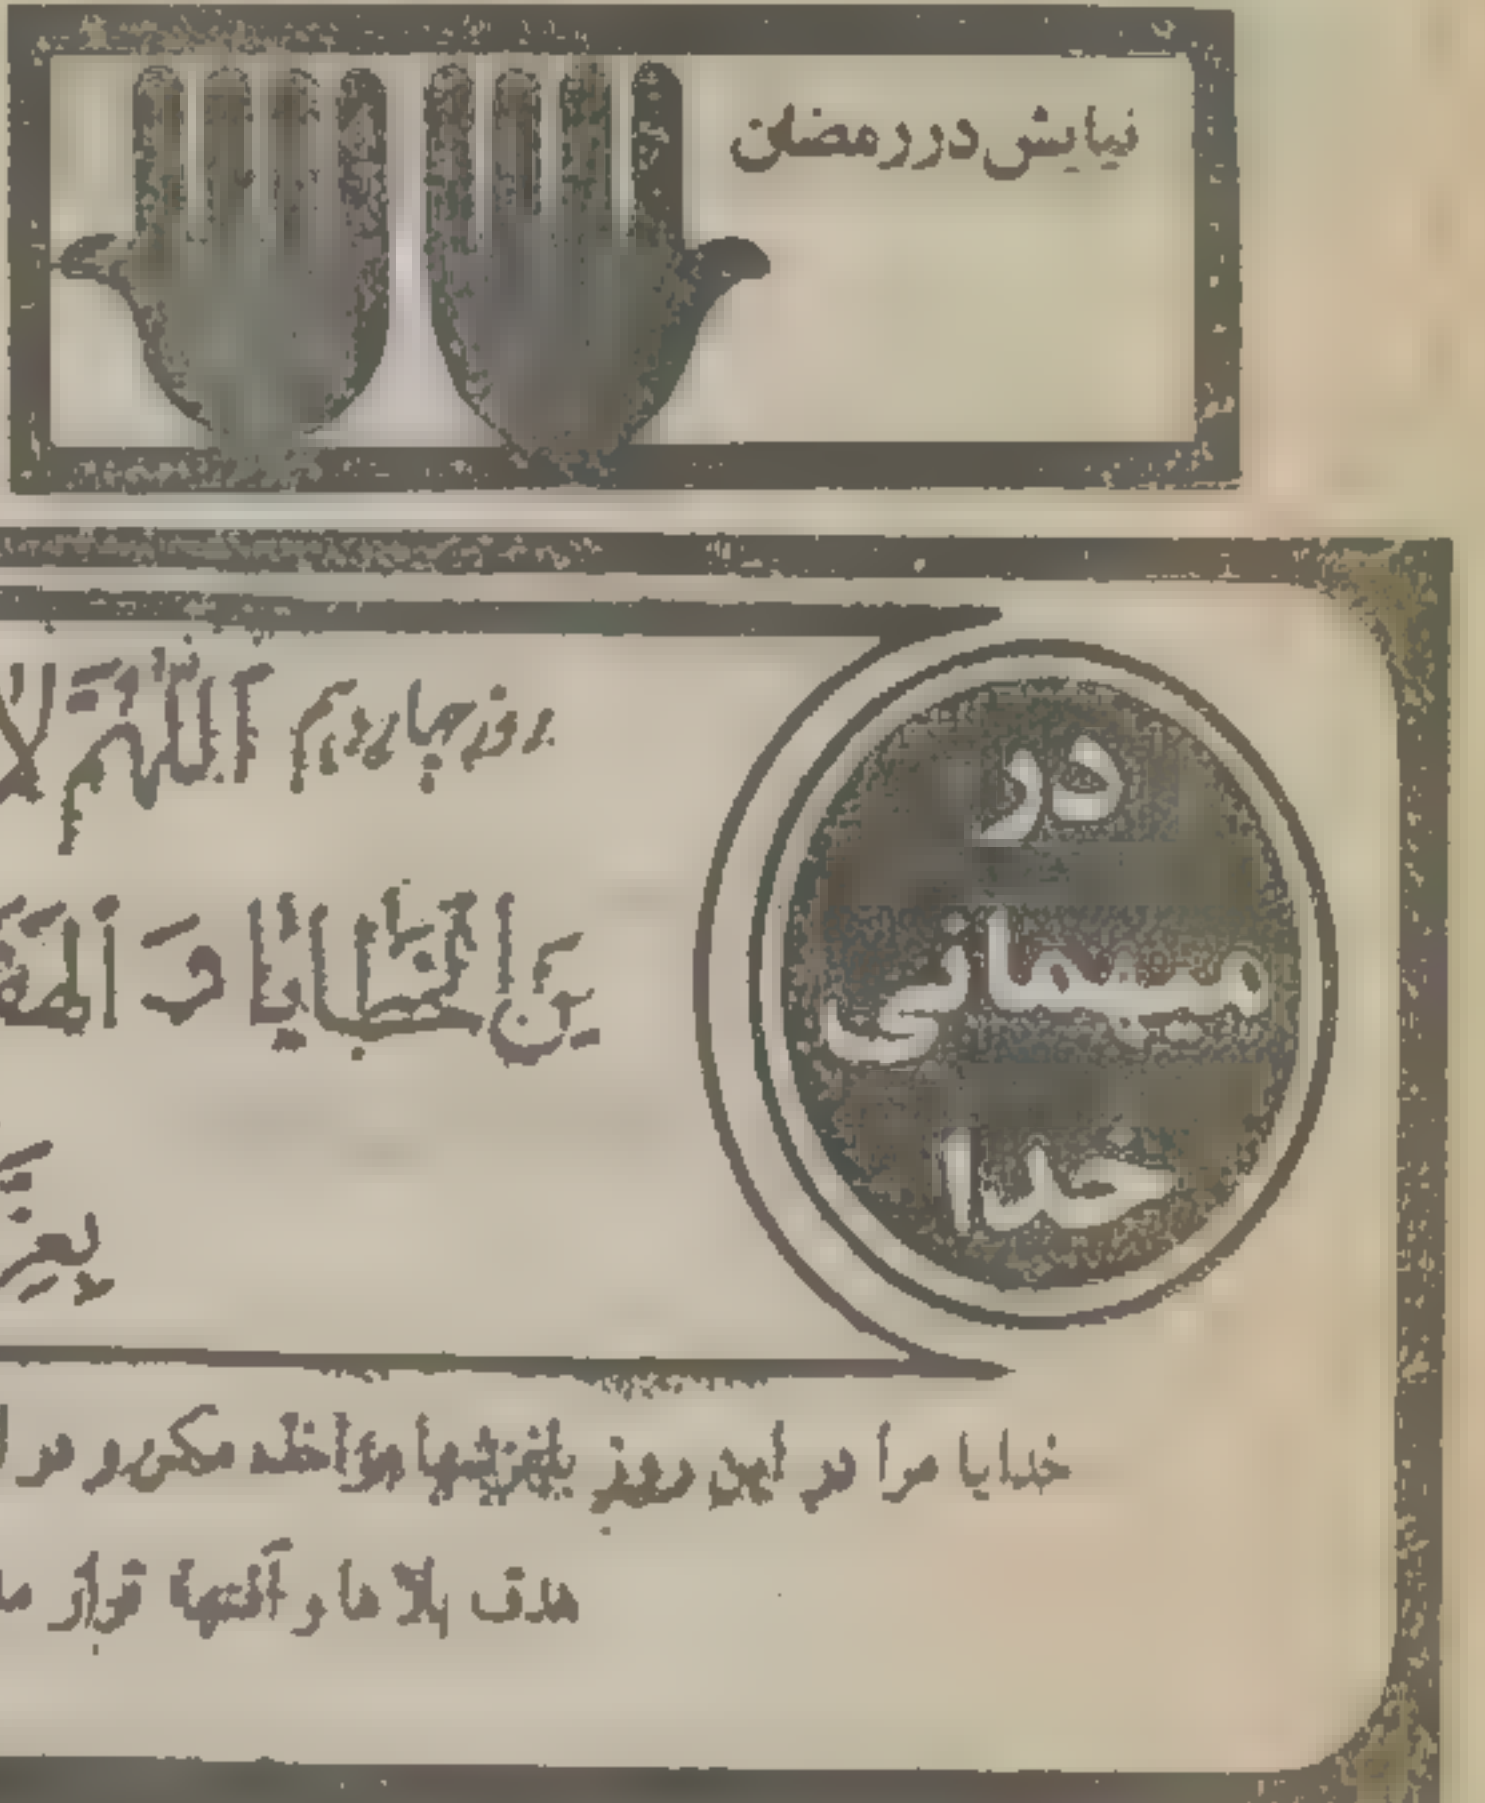 نیایش در رمضان
در
میهمانی
خدا
روز چهاردهم اَللّهُمَّ لا
مِنَ الْخَطايا وَ الْهَفَ
خدایا مرا در این روز بلغزشها مؤاخذه مکن و در
هدف بلاها و آفتها قرار